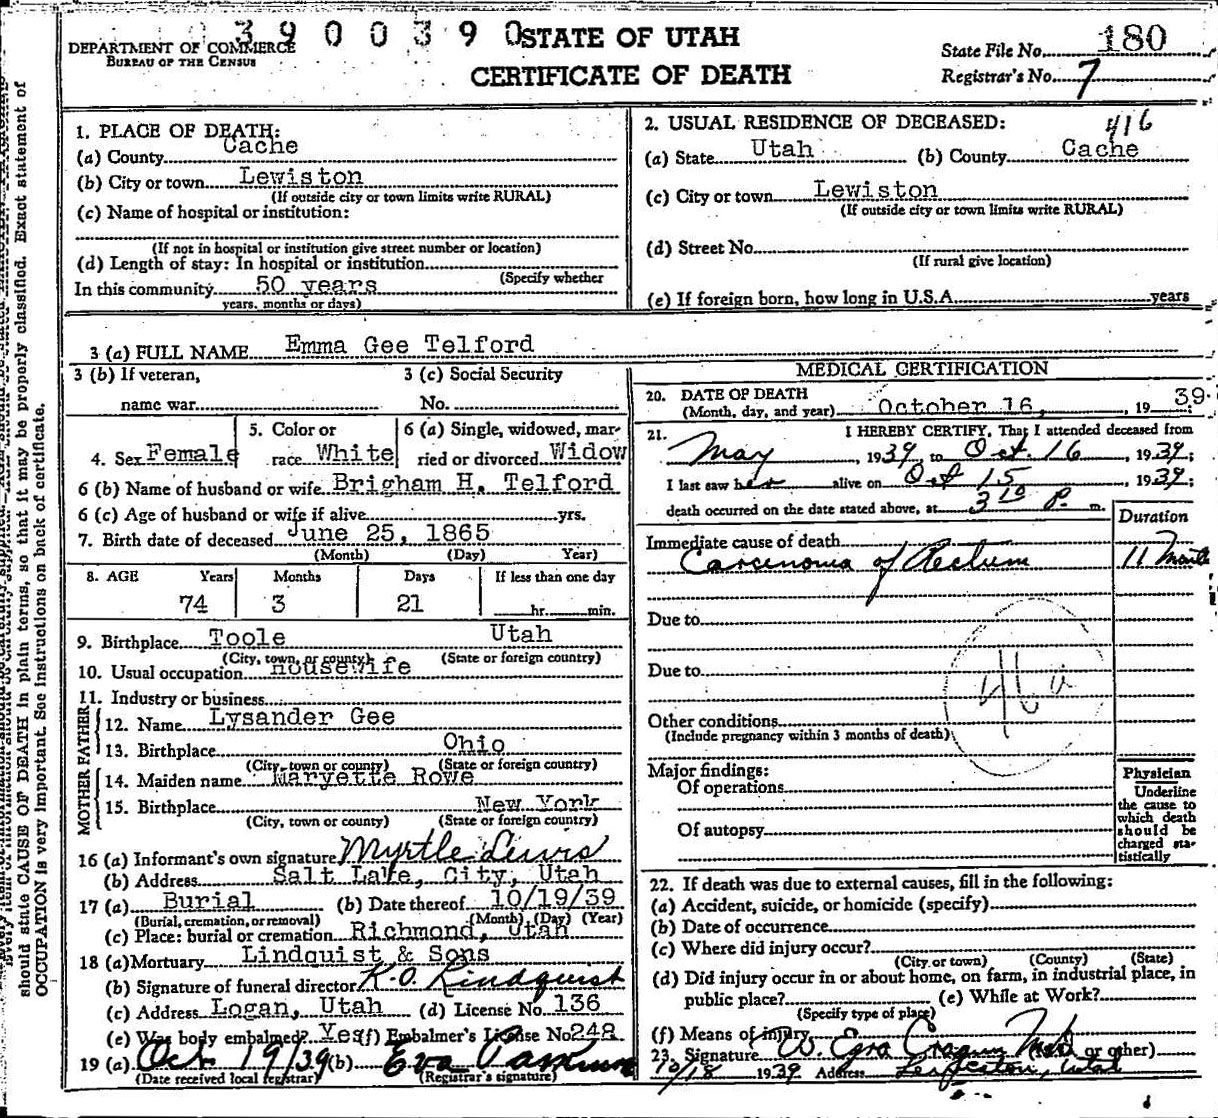 3 9 0 0 3 9 0
DEPARTMENT OF COMMERCE
BUREAU OF THE CENSUS
STATE OF UTAH
CERTIFICATE OF DEATH
State File No. 180
Registrar's No. 7
1. PLACE OF DEATH:
(a) County Cache
(b) City or town Lewiston
(If outside city or town limits write RURAL)
(c) Name of hospital or institution:
(If not in hospital or institution give street number or location)
(d) Length of stay: In hospital or institution
(Specify whether
In this community 50 years
years, months or days)
2. USUAL RESIDENCE OF DECEASED: 416
(a) State Utah (b) County Cache
(c) City or town Lewiston
(If outside city or town limits write RURAL)
(d) Street No.
(If rural give location)
(e) If foreign born, how long in U.S.A. years
3 (a) FULL NAME Emma Gee Telford
3 (b) If veteran,
name war
3 (c) Social Security
No.
4. Sex Female
5. Color or
race White
6 (a) Single, widowed, mar-
ried or divorced Widow
6 (b) Name of husband or wife Brigham H. Telford
6 (c) Age of husband or wife if alive yrs.
7. Birth date of deceased June 25, 1865
(Month) (Day) Year)
8. AGE Years Months Days If less than one day
74 3 21 hr. min.
9. Birthplace Toole Utah
(City, town, or county) (State or foreign country)
10. Usual occupation housewife
11. Industry or business
FATHER
12. Name Lysander Gee
13. Birthplace Ohio
(City, town or county) (State or foreign country)
MOTHER
14. Maiden name Maryette Rowe
15. Birthplace New York
(City, town or county) (State or foreign country)
16 (a) Informant's own signature Myrtle Lewis
(b) Address Salt Lake, City, Utah
17 (a) Burial (b) Date thereof 10/19/39
(Burial, cremation, or removal) (Month), (Day) (Year)
(c) Place: burial or cremation Richmond, Utah
18 (a) Mortuary Lindquist & Sons
(b) Signature of funeral director K.O. Lindquist
(c) Address Logan, Utah (d) License No. 136
(e) Was body embalmed? Yes (f) Embalmer's License No. 248
19 (a) Oct 19/39 (b) Eva
(Date received local registrar) (Registrar's signature)
MEDICAL CERTIFICATION
20. DATE OF DEATH
(Month, day, and year) October 16, 1939.
21. I HEREBY CERTIFY, That I attended deceased from
May, 1939, to Oct. 16, 1939;
I last saw her alive on Oct 15, 1939;
death occurred on the date stated above, at 3 10 P. m.
Duration
Immediate cause of death
Carcenoma of Rectum 11
Due to
Due to
Other conditions
(Include pregnancy within 3 months of death)
Major findings:
Of operations
Of autopsy
Physician
Underline
the cause to
which death
should be
charged sta-
tistically
22. If death was due to external causes, fill in the following:
(a) Accident, suicide, or homicide (specify)
(b) Date of occurrence
(c) Where did injury occur?
(City or town) (County) (State)
(d) Did injury occur in or about home, on farm, in industrial place, in
public place? (e) While at Work?
(Specify type of place)
(f) Means of injury
23. Signature W. Ezra Cragun M.D. or other)
10/18 1939 Address Lewiston, Utah
should state CAUSE OF DEATH in plain terms, so that it may be properly classified. Exact statement of
OCCUPATION is very important. See instructions on back of certificate.